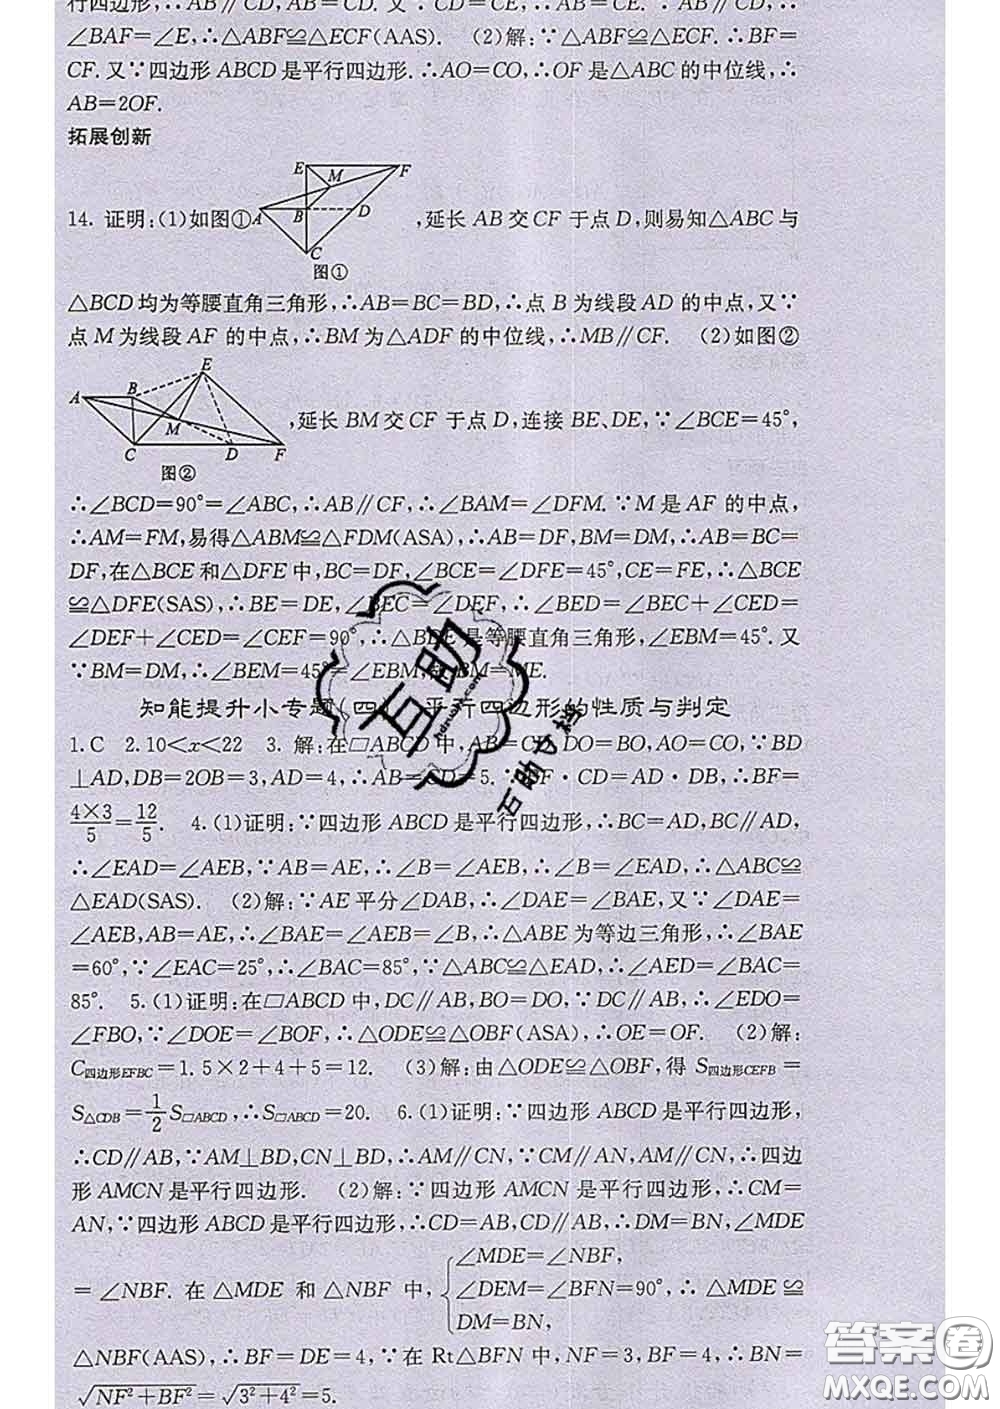 行四边形,∴AB∥CD,AB=CD. 又∵CD=CE,∴AB=CE. ∵AB∥CD,∴
∠BAF=∠E,∴△ABF≌△ECF(AAS). (2)解:∵△ABF≌△ECF. ∴BF=
CF. 又∵四边形ABCD是平行四边形. ∴AO=CO,∴OF是△ABC的中位线,∴
AB=2OF.
拓展创新
E M F
14. 证明:(1)如图① A B D ,延长AB交CF于点D,则易知△ABC与
C
图①
△BCD均为等腰直角三角形,∴AB=BC=BD,∴点B为线段AD的中点,又∵
点M为线段AF的中点,∴BM为△ADF的中位线,∴MB∥CF. (2)如图②
A B E M C D F ,延长BM交CF于点D,连接BE、DE,∵∠BCE=45°,
图②
∴∠BCD=90°=∠ABC,∴AB∥CF,∴∠BAM=∠DFM. ∵M是AF的中点,
∴AM=FM,易得△ABM≌△FDM(ASA),∴AB=DF,BM=DM,∴AB=BC=
DF,在△BCE和△DFE中,BC=DF,∠BCE=∠DFE=45°,CE=FE,∴△BCE
≌△DFE(SAS),∴BE=DE,∠BEC=∠DEF,∴∠BED=∠BEC+∠CED=
∠DEF+∠CED=∠CEF=90°,∴△BDE是等腰直角三角形,∠EBM=45°. 又
∵BM=DM,∴∠BEM=45°=∠EBM,∴BM=ME.
知能提升小专题(四) 平行四边形的性质与判定
1.C 2.10<x<22 3. 解:在□ABCD中,AB=CD,DO=BO,AO=CO,∵BD
⊥AD,DB=2OB=3,AD=4,∴AB=CD=5. ∵BF·CD=AD·DB,∴BF=
4×3/5=12/5. 4.(1)证明:∵四边形ABCD是平行四边形,∴BC=AD,BC∥AD,
∴∠EAD=∠AEB,∵AB=AE,∴∠B=∠AEB,∴∠B=∠EAD,∴△ABC≌
△EAD(SAS). (2)解:∵AE平分∠DAB,∴∠DAE=∠BAE,又∵∠DAE=
∠AEB,AB=AE,∴∠BAE=∠AEB=∠B,∴△ABE为等边三角形,∴∠BAE
=60°,∵∠EAC=25°,∴∠BAC=85°,∵△ABC≌△EAD,∴∠AED=∠BAC=
85°. 5.(1)证明:在□ABCD中,DC∥AB,BO=DO,∵∴∠EDO=
∠FBO,∵∠DOE=∠BOF,∴△ODE≌△OBF(ASA),∴OE=OF. (2)解:
C四边形EFBC=1.5×2+4+5=12. (3)解:由△ODE≌△OBF,得S四边形CEFB=
S△CDB=1/2S□ABCD,∴S□ABCD=20. 6.(1)证明:∵四边形ABCD是平行四边形,
∴CD∥AB,∵AM⊥BD,CN⊥BD,∴AM∥CN,∵CM∥AN,AM∥CN,∴四边
形AMCN是平行四边形. (2)解:∵四边形AMCN是平行四边形,∴CM=
AN,∵四边形ABCD是平行四边形,∴CD=AB,CD∥AB,∴DM=BN,∠MDE
=∠NBF. 在△MDE和△NBF中,{∠MDE=∠NBF,
∠DEM=∠BFN=90°,∴△MDE≌
DM=BN,
△NBF(AAS),∴BF=DE=4,∵在Rt△BFN中,NF=3,BF=4,∴BN=
√NF²+BF²=√3²+4²=5.
互助
互助文档
答案卷
MXQE.COM